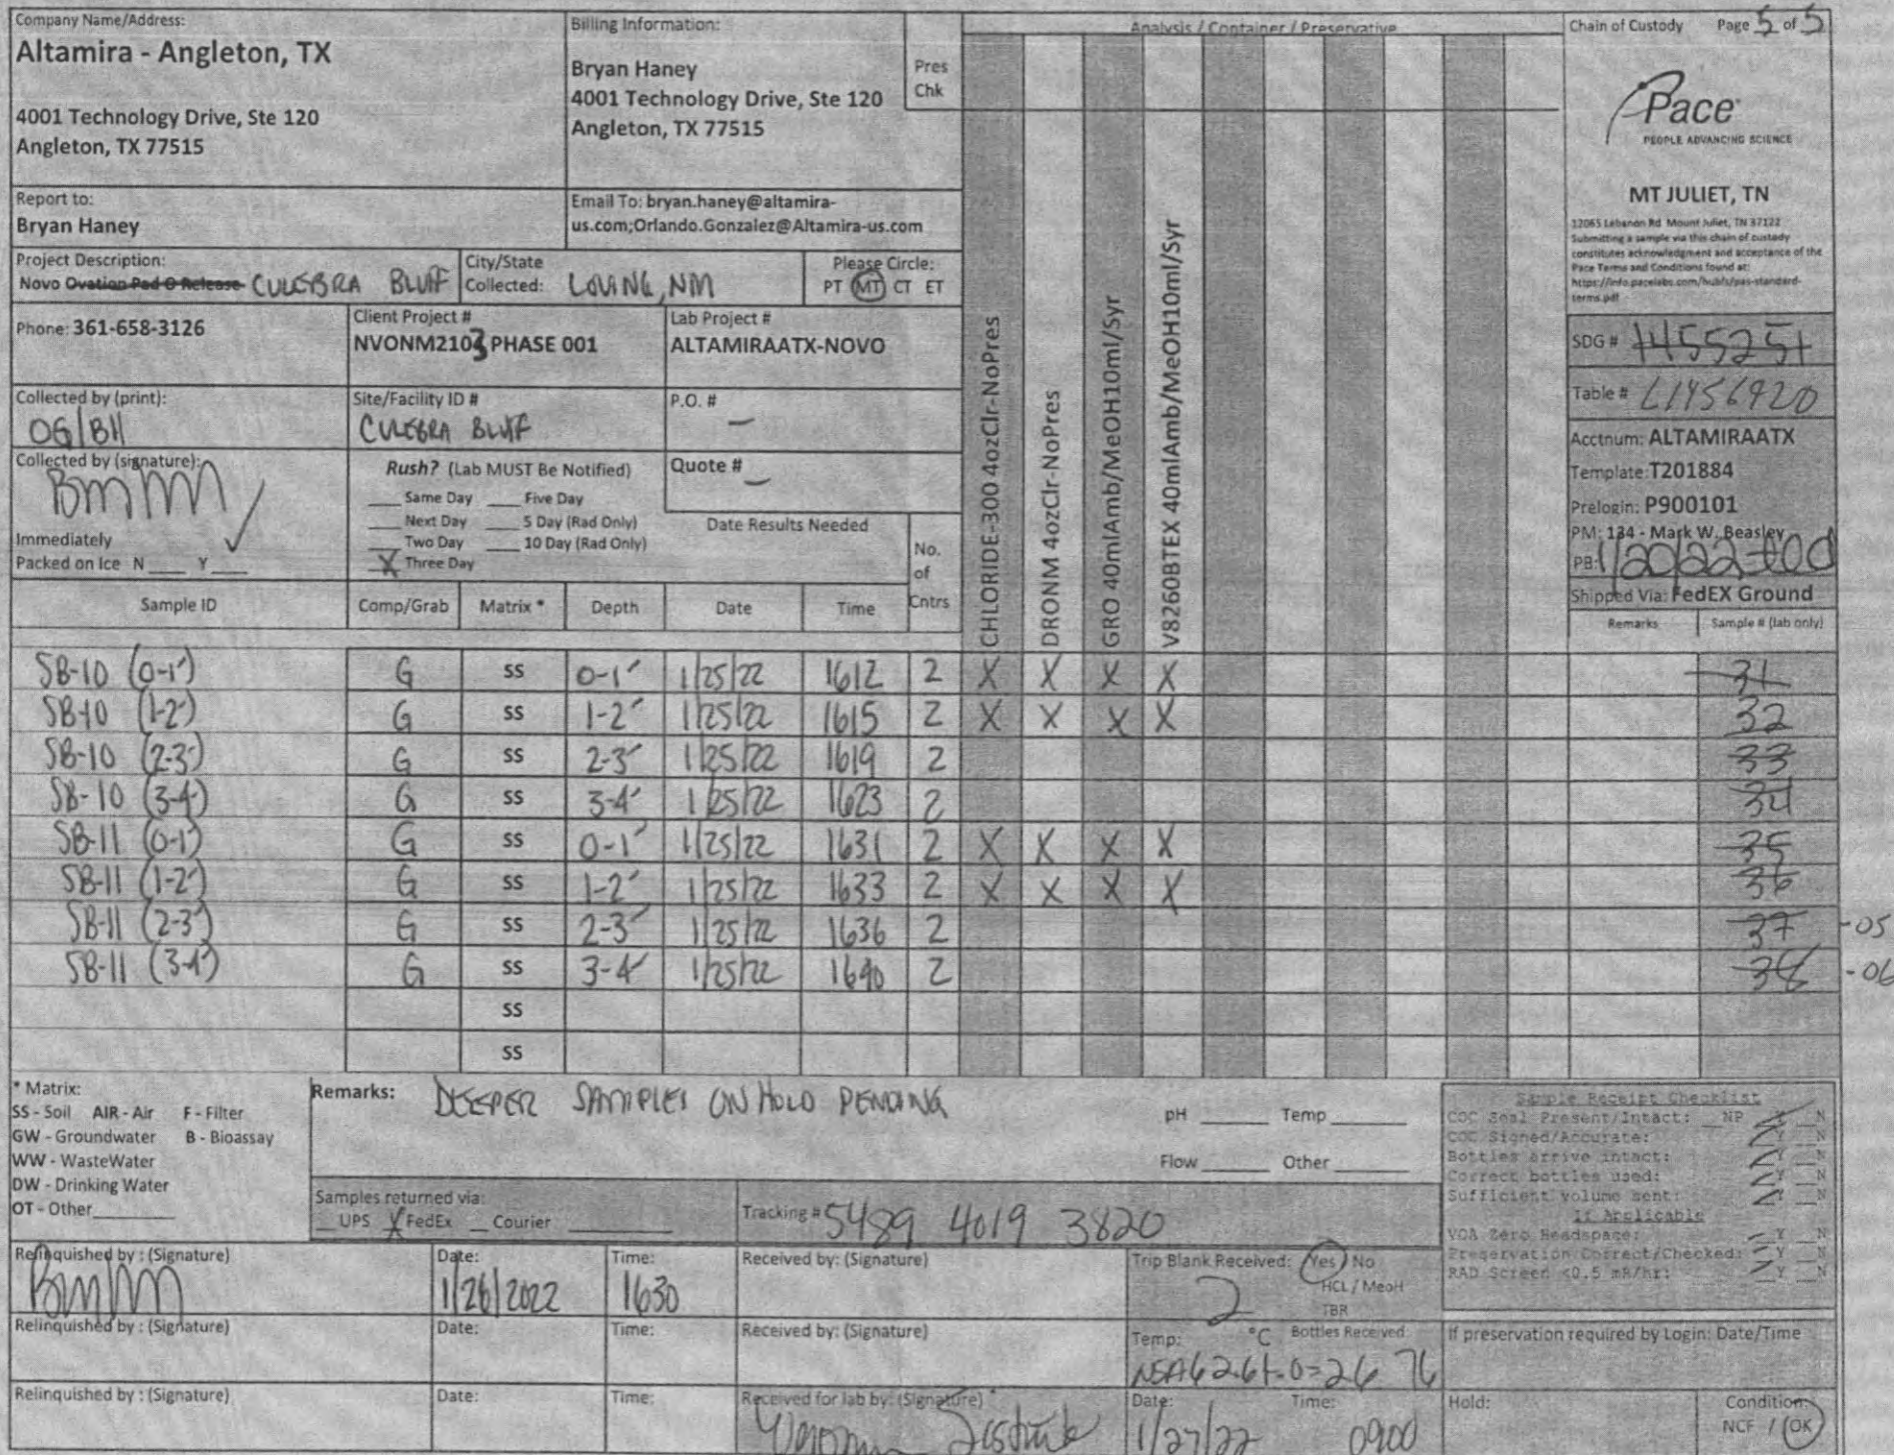 Company Name/Address:
Altamira - Angleton, TX
4001 Technology Drive, Ste 120
Angleton, TX 77515
Billing Information:
Bryan Haney
4001 Technology Drive, Ste 120
Angleton, TX 77515
Pres
Chk
Analysis / Container / Preservative
Chain of Custody Page 5 of 5
Pace
PEOPLE ADVANCING SCIENCE
MT JULIET, TN
12065 Lebanon Rd Mount Juliet, TN 37122
Submitting a sample via this chain of custody
constitutes acknowledgment and acceptance of the
Pace Terms and Conditions found at:
https://info.pacelabs.com/hubfs/pas-standard-
terms.pdf
Report to:
Bryan Haney
Email To: bryan.haney@altamira-
us.com;Orlando.Gonzalez@Altamira-us.com
Project Description:
Novo Ovation Pad O Release CULEBRA BLUFF
City/State
Collected: LOVING, NM
Please Circle:
PT MT CT ET
Phone: 361-658-3126
Client Project #
NVONM2103 PHASE 001
Lab Project #
ALTAMIRAATX-NOVO
Collected by (print):
OG/BH
Site/Facility ID #
CULEBRA BLUFF
P.O. #
—
Collected by (signature):
Immediately
Packed on Ice N ___ Y ___
Rush? (Lab MUST Be Notified)
___ Same Day ___ Five Day
___ Next Day ___ 5 Day (Rad Only)
___ Two Day ___ 10 Day (Rad Only)
X Three Day
Quote #
—
Date Results Needed
No.
of
Cntrs
CHLORIDE-300 4ozClr-NoPres
DRONM 4ozClr-NoPres
GRO 40mlAmb/MeOH10ml/Syr
V8260BTEX 40mlAmb/MeOH10ml/Syr
SDG # 1455251
Table # L1456920
Acctnum: ALTAMIRAATX
Template: T201884
Prelogin: P900101
PM: 134 - Mark W. Beasley
PB: 1/20/22
Shipped Via: FedEX Ground
Remarks Sample # (lab only)
Sample ID Comp/Grab Matrix * Depth Date Time
SB-10 (0-1') G SS 0-1' 1/25/22 1612 2 X X X X 31
SB-10 (1-2') G SS 1-2' 1/25/22 1615 2 X X X X 32
SB-10 (2-3') G SS 2-3' 1/25/22 1619 2 33
SB-10 (3-4') G SS 3-4' 1/25/22 1623 2 34
SB-11 (0-1') G SS 0-1' 1/25/22 1631 2 X X X X 35
SB-11 (1-2') G SS 1-2' 1/25/22 1633 2 X X X X 36
SB-11 (2-3') G SS 2-3' 1/25/22 1636 2 37 -05
SB-11 (3-4') G SS 3-4' 1/25/22 1640 2 38 -06
SS
SS
* Matrix:
SS - Soil AIR - Air F - Filter
GW - Groundwater B - Bioassay
WW - WasteWater
DW - Drinking Water
OT - Other
Remarks: DEEPER SAMPLES ON HOLD PENDING
pH ___ Temp ___
Flow ___ Other ___
Sample Receipt Checklist
COC Seal Present/Intact: __NP __Y __N
COC Signed/Accurate: __Y __N
Bottles arrive intact: __Y __N
Correct bottles used: __Y __N
Sufficient volume sent: __Y __N
If Applicable
VOA Zero Headspace: __Y __N
Preservation Correct/Checked: __Y __N
RAD Screen <0.5 mR/hr: __Y __N
Samples returned via:
__ UPS X FedEx __ Courier
Tracking # 5489 4019 3820
Relinquished by : (Signature)
Date:
1/26/2022
Time:
1630
Received by: (Signature)
Trip Blank Received: Yes / No
HCL / MeoH
TBR
2
Relinquished by : (Signature)
Date:
Time:
Received by: (Signature)
Temp: °C Bottles Received:
NSA6 2.6+.0=2.6 76
If preservation required by Login: Date/Time
Relinquished by : (Signature)
Date:
Time:
Received for lab by: (Signature)
Date:
1/27/22
Time:
0900
Hold:
Condition:
NCF / OK